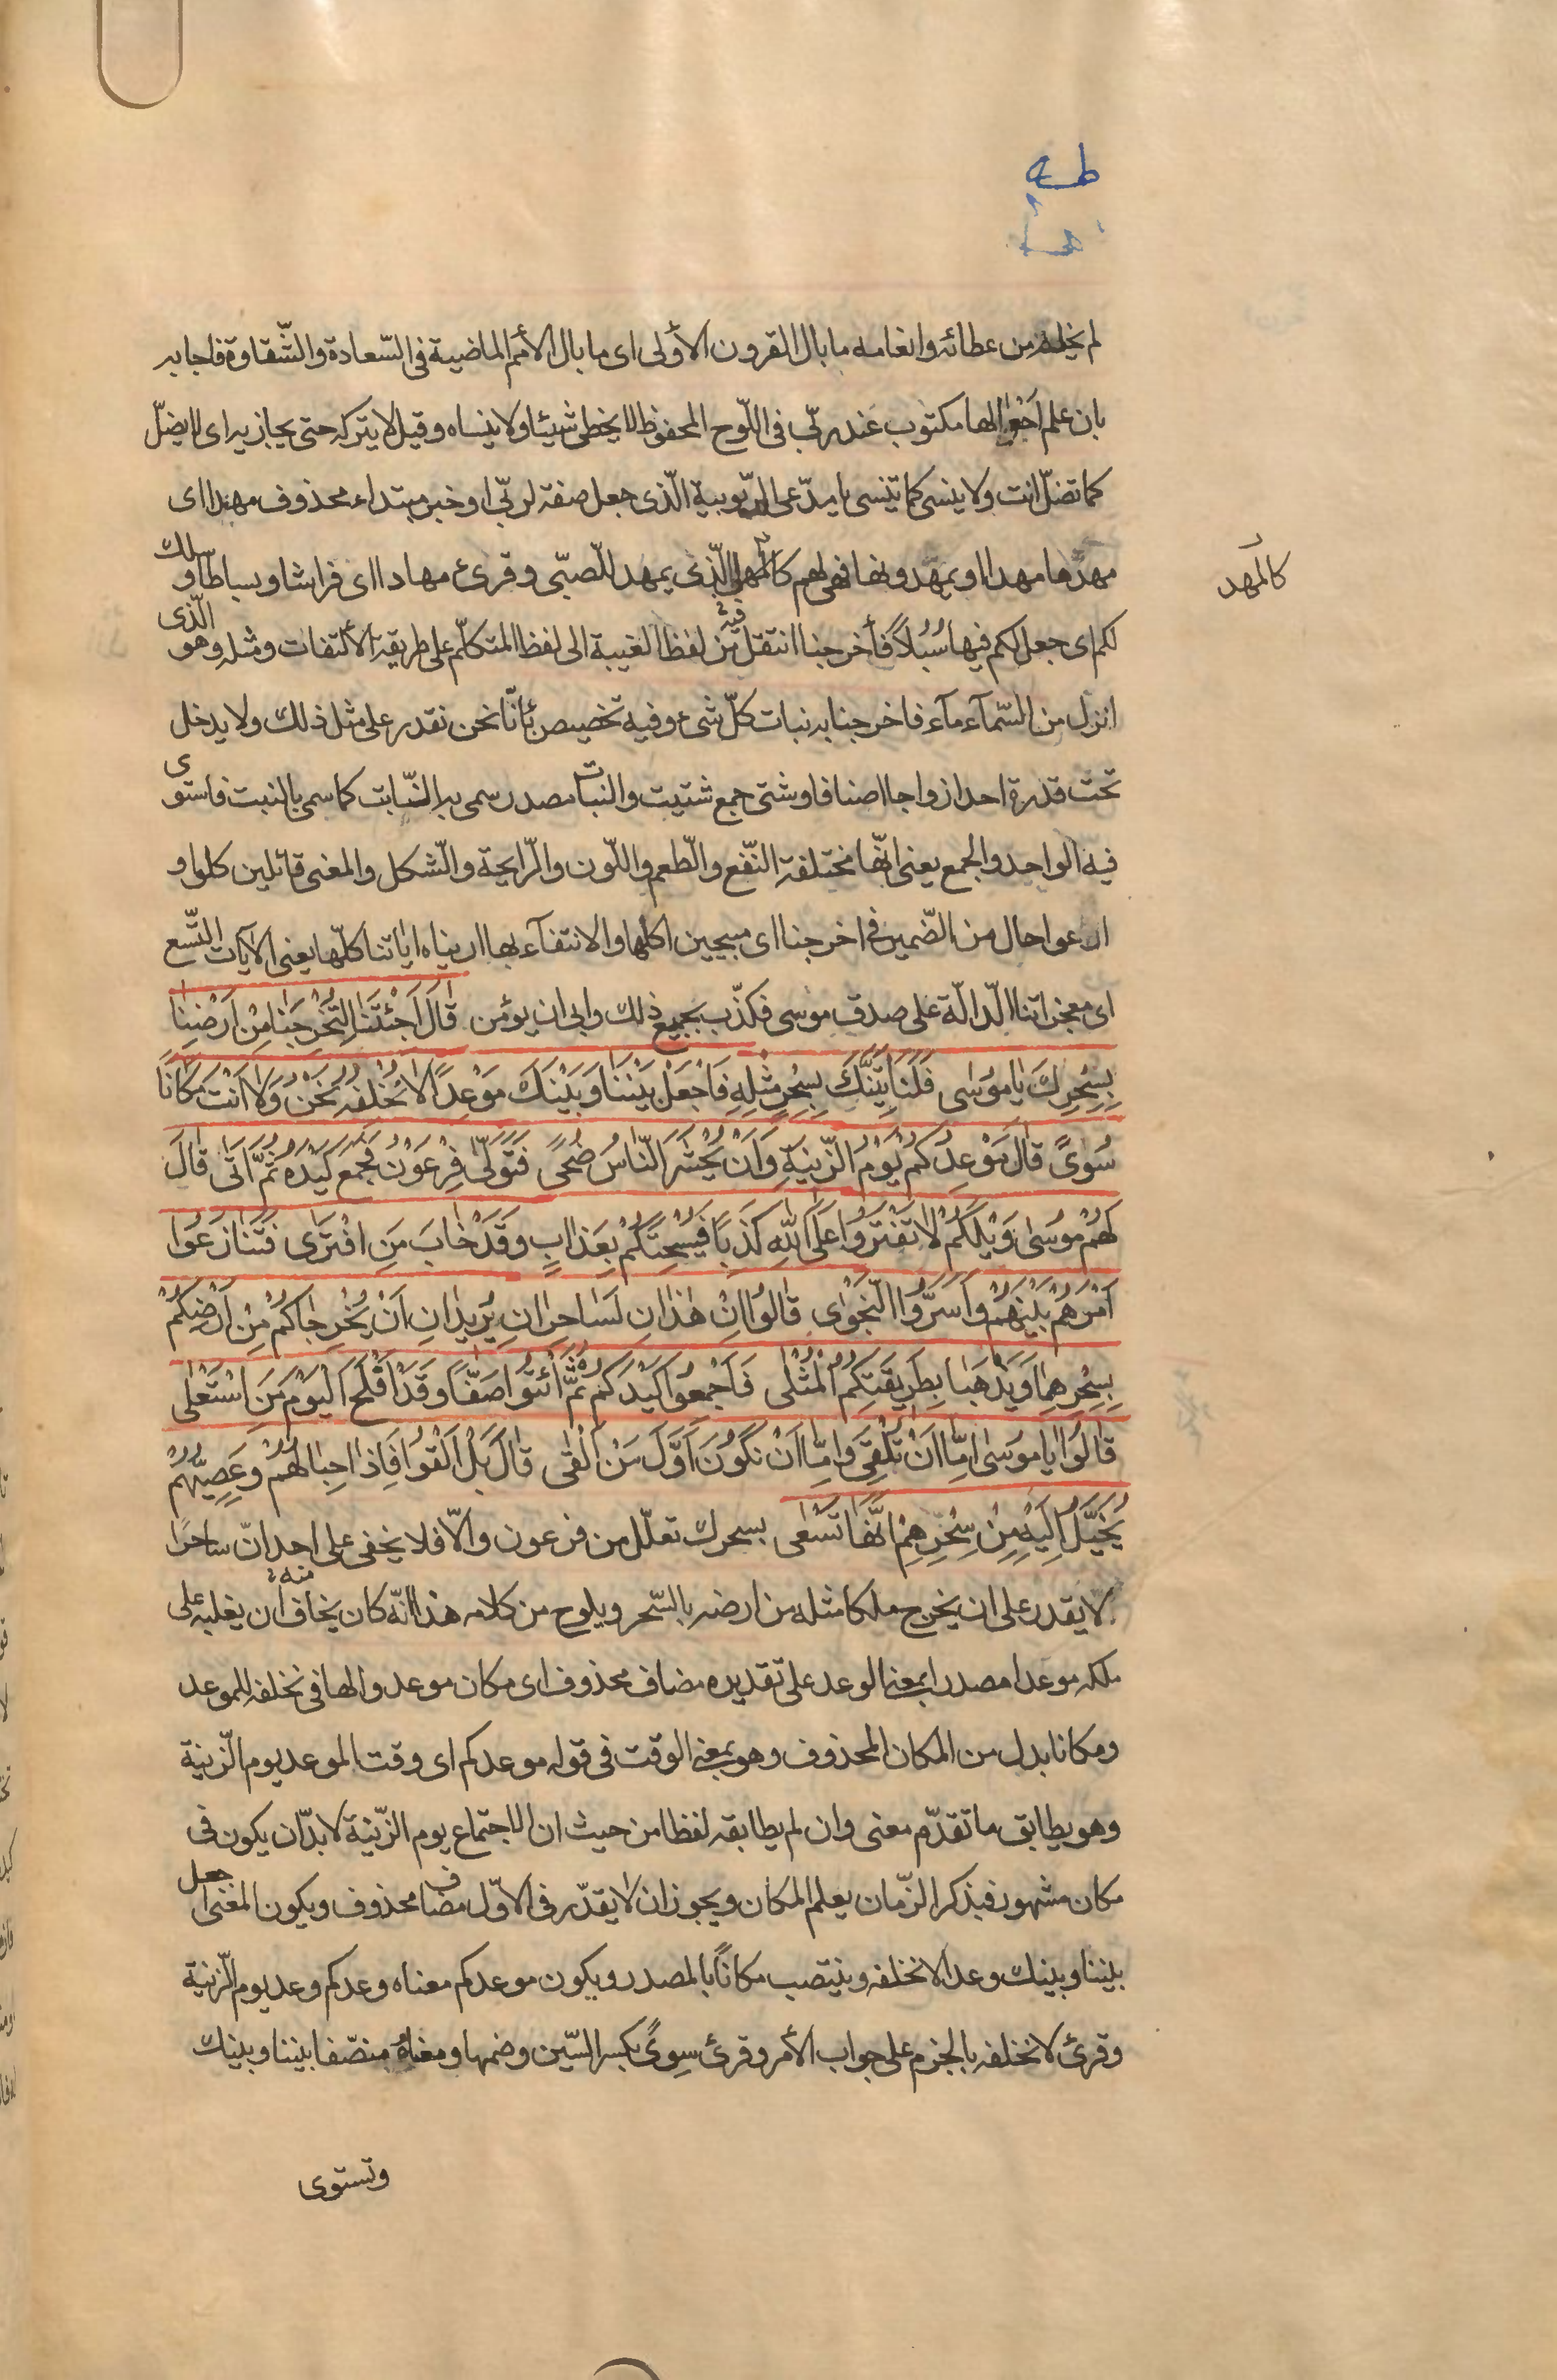 طه
لم يخله من عطائه وانعامه ما بال القرون الأولى اى ما بال الأمم الماضية فى السّعادة والشّقاوة فاجابه
بان علم احوالها مكتوب عند ربّى فى اللّوح المحفوظ لا يخطى شيئا ولا ينساه وقيل لا يتركه حتى يجازيه اى لا يضلّ
كما تضلّ انت ولا ينسى كما تنسى يا مدّعى الرّبوبية الّذى جعل صفة لربّى او خبر مبتداء محذوف مهدا اى
مهدّها مهدا او يمهّدونها فهى لهم كالمهد الّذى يمهد للصّبى وقرئ مهادا اى فراشا وبساطا وسلك
كالمهد
لكم اى جعل لكم فيها سُبُلاً فأخرجنا انتقل فيه من لفظ الغيبة الى لفظ المتكلّم على طريقة الألتفات ومثله وهو الّذى
انزل من السّمآء مآء فاخرجنا به نبات كلّ شىء وفيه تخصيص بأنّا نحن نقدر على مثل ذلك ولا يدخل
تحت قدرة احد ازواجا اصنافا وشتى جمع شتيت والنبات مصدر سمى به النّبابت كما سمى بالنبت فاستوى
فيه الواحد والجمع يعنى انّها مختلفة النّفع والطّعم واللّون والرّايحة والشّكل والمغنى قائلين كلوا و
ارعوا حال من الضّمير فى اخرجنا اى مبيحين اكلها والانتفآء بها اريناه اياتنا كلّها يعنى الآيات التّسع
اى معجزاتنا الدّالّة على صدق موسى فكذّب بجميع ذلك وابى ان يؤمن قَالَ اَجِئْتَنَا لِتُخْرِجَنَا مِنْ اَرْضِنٰا
بِسِحْرِكَ يٰا مُوسٰى فَلَنَأْتِيَنَّكَ بِسِحْرٍ مِثْلِهِ فَاجْعَلْ بَيْنَنٰا وَبَيْنَكَ مَوْعِدًا لاٰ نُخْلِفُهُ نَحْنُ وَلاٰ اَنْتَ مَكٰانًا
سُوىً قٰالَ مَوْعِدُكُمْ يَوْمُ الزّينَةِ وَاَنْ يُحْشَرَ النّٰاسُ ضُحًى فَتَوَلّٰى فِرْعَوْنُ فَجَمَعَ كَيْدَهُ ثُمَّ اَتٰى قٰالَ
لَهُمْ مُوسٰى وَيْلَكُمْ لاٰ تَفْتَرُوا عَلَى اللّٰهِ كَذِبًا فَيُسْحِتَكُمْ بِعَذٰابٍ وَقَدْ خٰابَ مَنِ افْتَرٰى فَتَنٰازَعُوا
اَمْرَهُمْ بَيْنَهُمْ وَاَسَرُّوا النَّجْوٰى قٰالُوا اِنْ هٰذٰانِ لَسٰاحِرٰانِ يُرِيدٰانِ اَنْ يُخْرِجٰاكُمْ مِنْ اَرْضِكُمْ
بِسِحْرِهِمٰا وَيَذْهَبٰا بِطَرِيقَتِكُمُ الْمُثْلٰى فَاَجْمِعُوا كَيْدَكُمْ ثُمَّ ائْتُوا صَفًّا وَقَدْ اَفْلَحَ الْيَوْمَ مَنِ اسْتَعْلٰى
قٰالُوا يٰا مُوسٰى اِمّٰا اَنْ تُلْقِىَ وَاِمّٰا اَنْ نَكُونَ اَوَّلَ مَنْ اَلْقٰى قٰالَ بَلْ اَلْقُوا فَاِذٰا حِبٰالُهُمْ وَعِصِيُّهُمْ
يُخَيَّلُ اِلَيْهِ مِنْ سِحْرِهِمْ اَنَّهٰا تَسْعٰى بسحرك تعلّل من فرعون والّا فلا يخفى على احد انّ ساحرًا
لا يقدر على ان يخرج ملكا مثله من ارضه بالسّحر ويلوح من كلامه هذا انّه كان يخاف منه ان يغلبه على
ملكه موعدا مصدر بمعنى الوعد على تقديره مضاف محذوف اى مكان موعد والها فى نخلفه للموعد
ومكانا بدل من المكان المحذوف وهو بمعنى الوقت فى قوله موعدكم اى وقت الموعد يوم الزّينة
وهو يطابق ما تقدّم معنى وان لم يطابقه لفظا من حيث ان الاجتماع يوم الزّينة لا بدّ ان يكون فى
مكان مشهور فبذكر الزّمان يعلم المكان ويجوز ان لا يقدّر فى الاوّل مضاف محذوف ويكون المعنى اجعل
بيننا وبينك وعدا لا نخلفه وينتصب مكانًا بالمصدر ويكون موعدكم معناه وعدكم وعد يوم الزّينة
وقرئ لا نخلفه بالجزم على جواب الأمر وقرئ سِوىً بكسر السّين وضمها ومعناه منصّفا بيننا وبينك
وتستوى